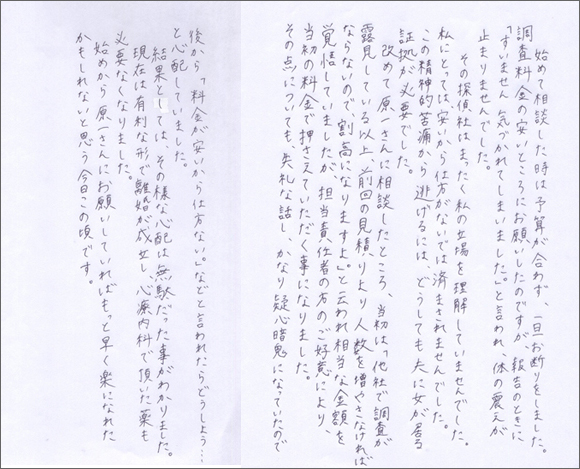 始めて相談した時は予算が合わず、一旦お断りをしました。
調査料金の安いところにお願いしたのですが、報告のときに
「すいません気づかれてしまいました。」と言われ、体の震えが
止まりませんでした。
その探偵社はまったく私の立場を理解していませんでした。
私にとっては安いから仕方がないでは済まされませんでした。
この精神的苦痛から逃げるには、どうしても夫に女が居る
証拠が必要でした。
改めて原一さんに相談したところ、当初は「他社で調査が
露見している以上、前回の見積りより人数を増やさなければ
ならないので、割高になりますよ。」と云われ相当な金額を
覚悟していましたが、担当責任者の方のご好意により、
当初の料金で押さえていただく事になりました。
その点についても、失礼な話し、かなり疑心暗鬼になっていたので
後から「料金が安いから仕方ない。」などと言われたらどうしよう…
と心配していました。
結果としては、その様な心配は無駄だった事がわかりました。
現在は有利な形で離婚が成立し、心療内科で頂いた薬も
必要なくなりました。
始めから原一さんにお願いしていればもっと早く楽になれた
かもしれないと思う今日この頃です。